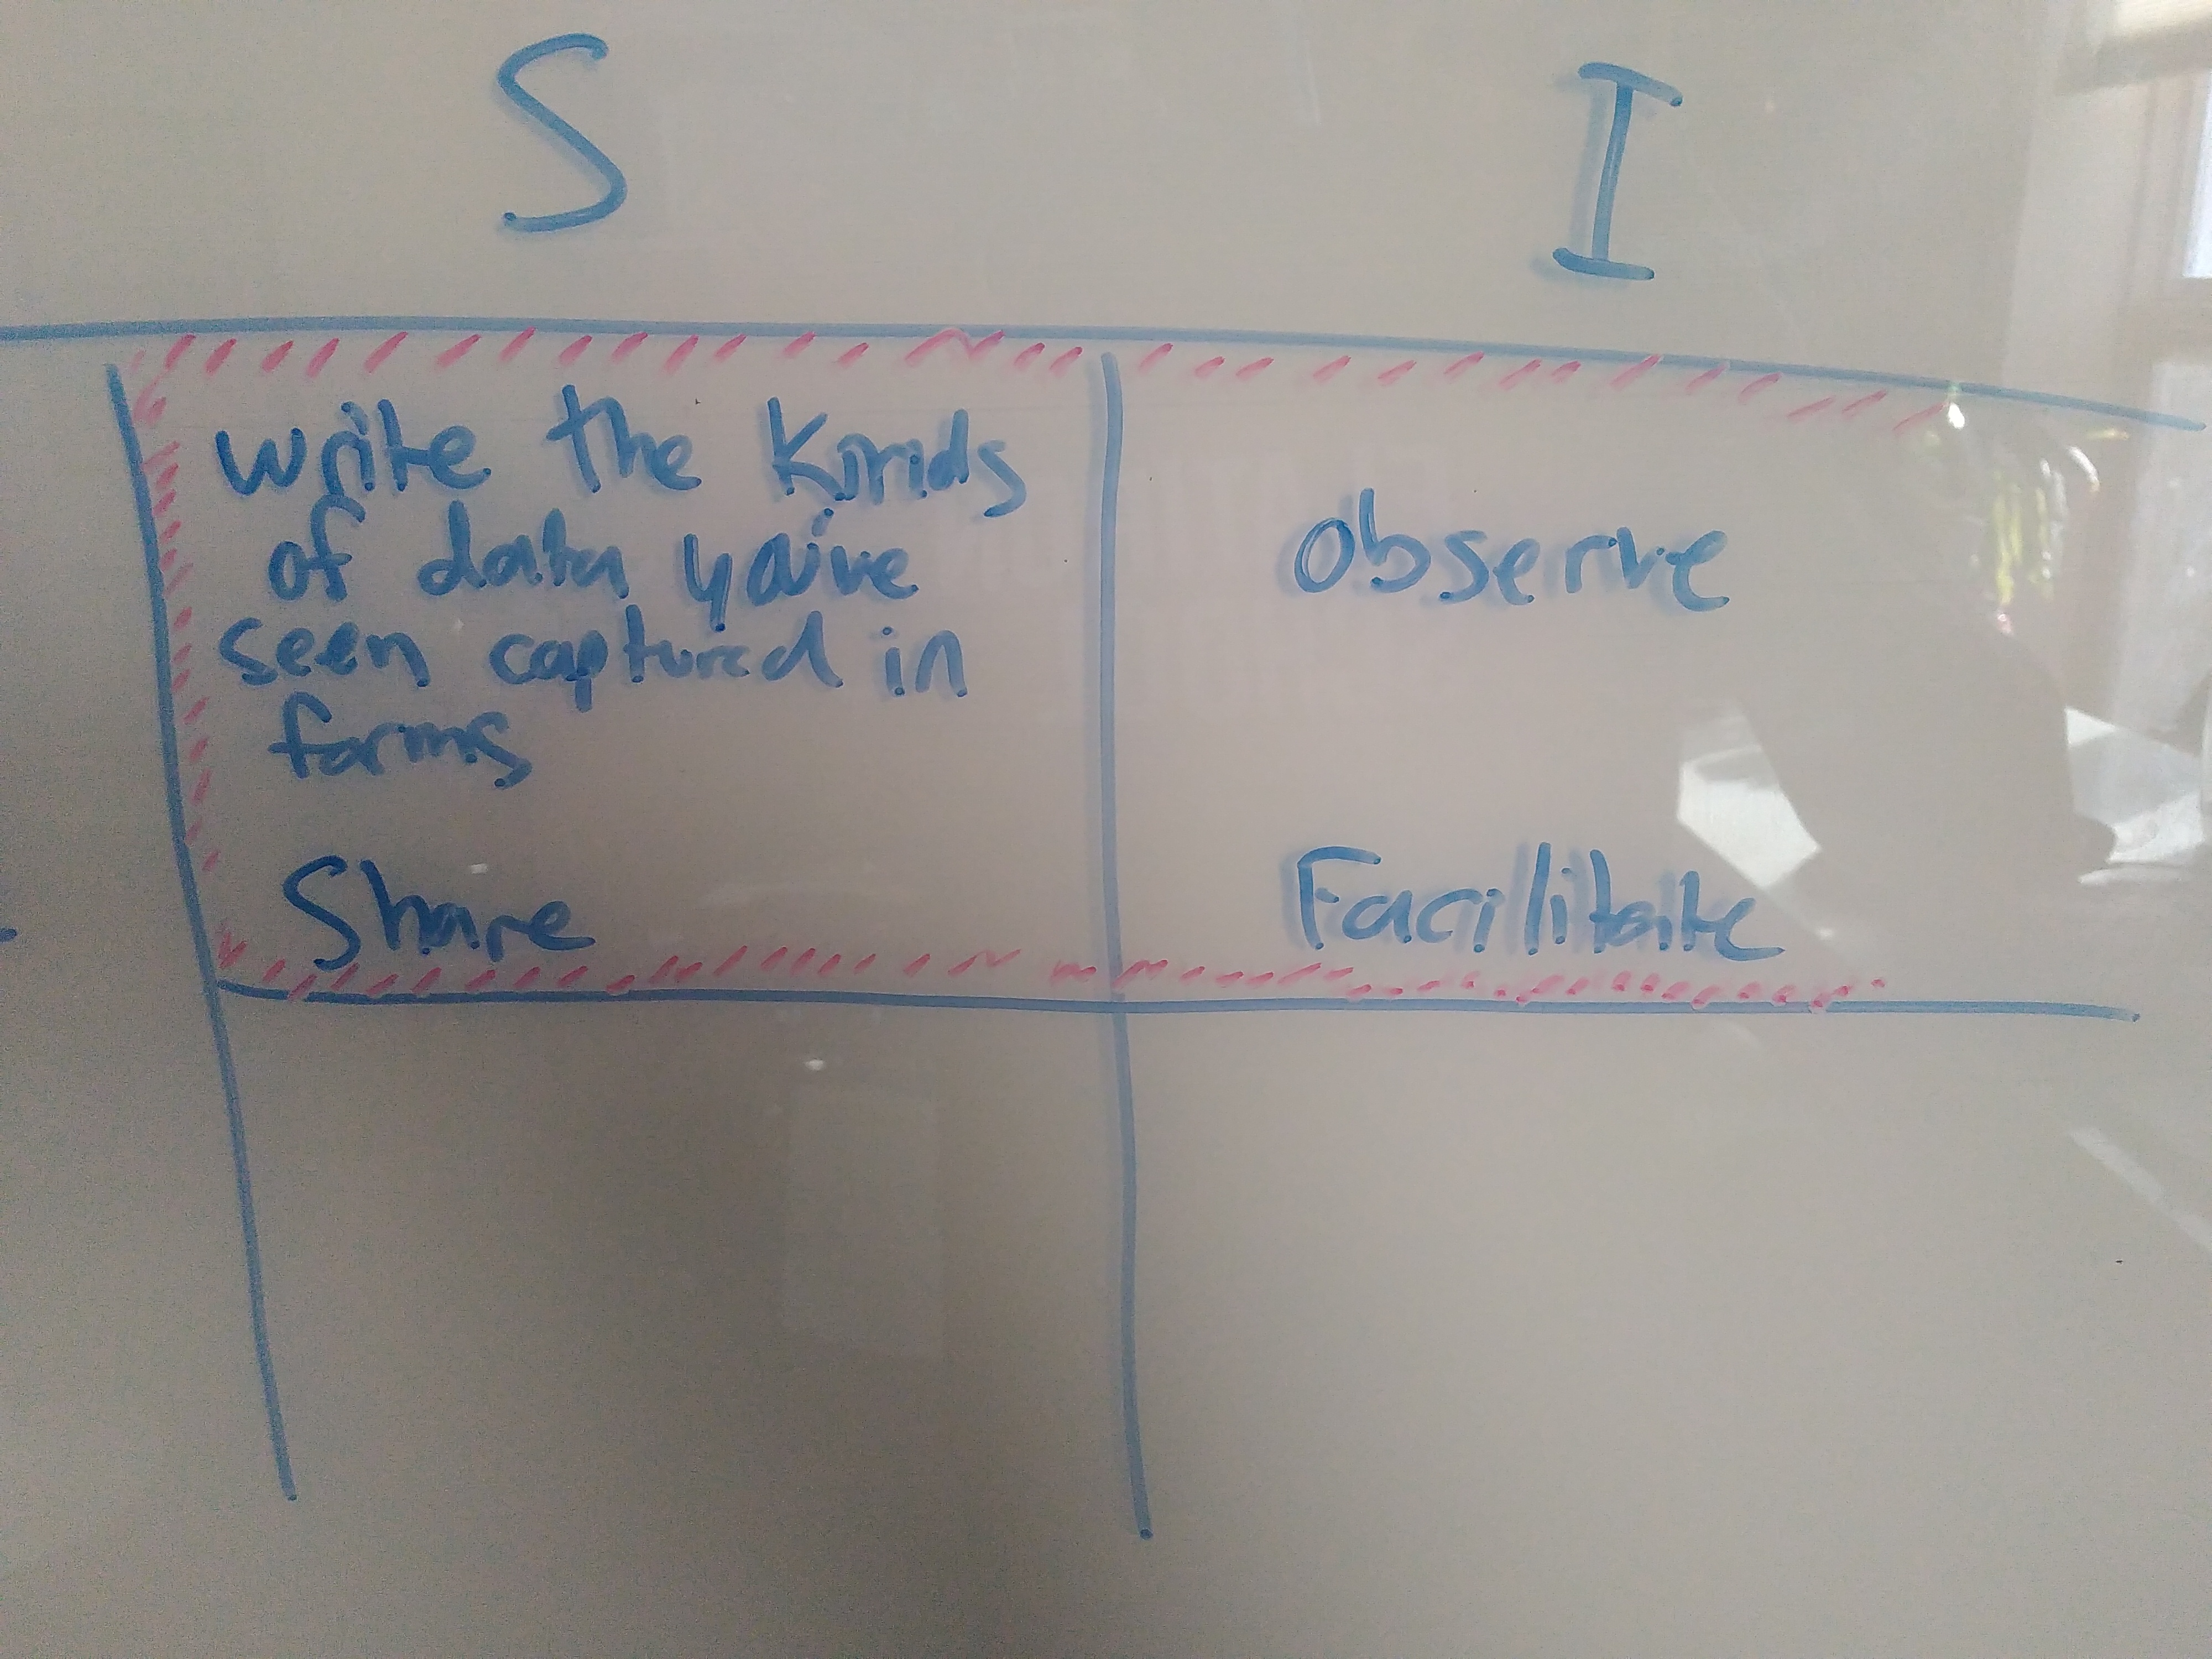 S
I
write the kinds
of data you've
seen captured in
forms
Share
Observe
Facilitate